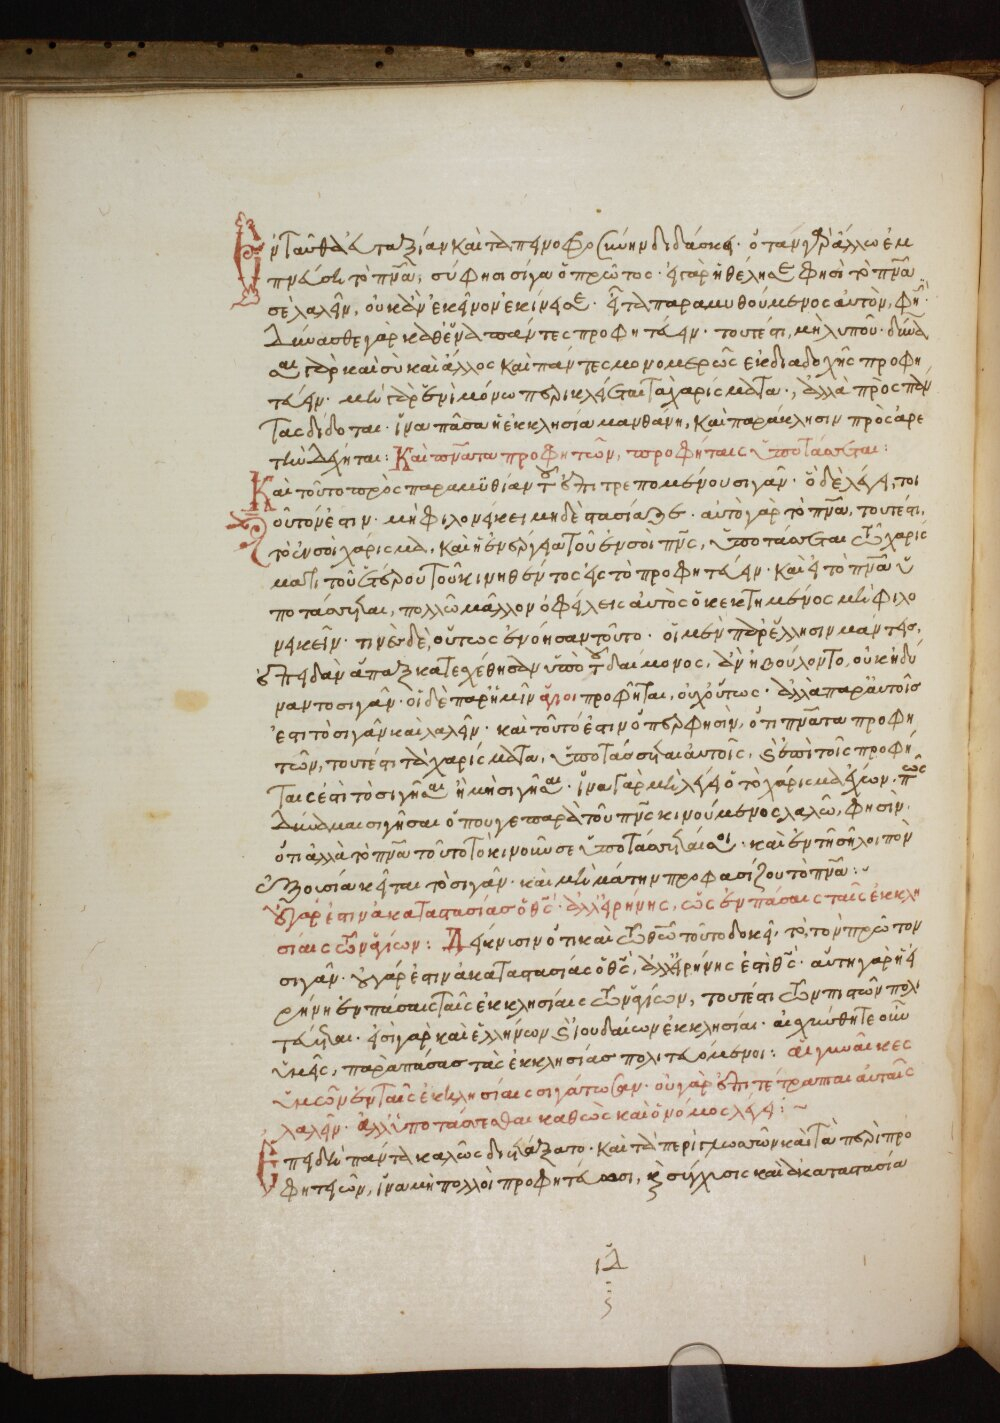 Ἐνταῦθα εὐταξίαν καὶ ταπεινοφροσύνην διδάσκει· ὅταν γὰρ ἄλλω ἐμ
πνεύση τὸ πνᾶ, σύ φησι σίγα ὁ πρῶτος· εἰ γὰρ ἤθελησε φησὶ τὸ πνᾶ
σὲ λαλεῖν, οὐκ ἂν ἐκεῖνον ἐκίνησε· εἶτα παραμυθούμενος αὐτὸν, φη·
δύνασθε γὰρ καθ' ἕνα πάντες προφητεύειν· τουτέστι, μὴ λυποῦ· δύνα
σαι γὰρ καὶ σὺ καὶ ἄλλος καὶ πάντες μονομερῶς ἐκ διαδοχῆς προφη
τεύειν· μὴ γὰρ ἑνὶ μόνω περικλείεται τὰ χαρίσματα, ἀλλὰ πρὸς πάν
τας δίδοται· ἵνα πᾶσα ἡ ἐκκλησία μανθάνη, καὶ παράκλησιν πρὸς ἀρε
τὴν δέχηται: Καὶ πνᾶτα προφητῶν, προφήταις ὑποτάσσεται:
Καὶ τοῦτο πρὸς παραμυθίαν τοῦ ἐπιτρεπομένου σιγᾶν· ὃ δὲ λέγει, τοι
οῦτόν ἐστιν· μὴ φιλονείκει μηδὲ στασίαζε· αὐτὸ γὰρ τὸ πνᾶ, τουτέστι,
τὸ ἐν σοὶ χάρισμα, καὶ ἡ ἐνέργεια τοῦ ἐν σοὶ πνς, ὑποτάσσεται τῶ χαρίς
ματι τοῦ ἑτέρου τοῦ κινηθέντος εἰς τὸ προφητεύειν· καὶ εἰ τὸ πνᾶ ὑ
ποτάσσεται, πολλῶ μᾶλλον ὀφείλεις αὐτὸς ὁ κεκτημένος μὴ φιλο
νεικεῖν· τινὲς δὲ, οὕτως ἐνόησαν τοῦτο· οἱ μὲν παρ' ἕλλησιν μάντεις,
ἐπειδὰν ἅπαξ κατεσχέθησαν ὑπὸ τοῦ δαίμονος, ἂν ἠβούλοντο, οὐκ ἠδύ
ναντο σιγᾶν· οἱ δὲ παρ' ἡμῖν ἅγιοι προφῆται, οὐχ οὕτως· ἀλλὰ παρ' αὐτοῖς
ἐστι τὸ σιγᾶν καὶ λαλεῖν· καὶ τοῦτό ἐστιν ὅπερ φησὶν, ὅτι πνᾶτα προφη
τῶν, τουτέστι τὰ χαρίσματα, ὑποτάσσεται αὐτοῖς, καὶ ἐπὶ τοῖς προφή
ταις ἐστὶ τὸ σιγῆσαι ἢ μὴ σιγῆσαι· ἵνα γὰρ μὴ λέγη ὁ τὸ χάρισμα ἔχων· πῶς
δύναμαι σιγῆσαι ὅπου γε παρὰ τοῦ πνς κινούμενος λαλῶ, φησὶν.
ὅτι ἀλλὰ τὸ πνᾶ τοῦτο τὸ κινοῦν σε ὑποτάσσεταί σοι· καὶ ἐν τῆ σῆ λοιπὸν
ἐξουσία κεῖται τὸ σιγᾶν· καὶ μὴ μάτην προφασίζου τὸ πνᾶ:
Οὐ γάρ ἐστιν ἀκαταστασίας ὁ θς· ἀλλ' εἰρήνης, ὡς ἐν πάσαις ταῖς ἐκκλη
σίαις τῶν ἁγίων: Δείκνυσιν ὅτι καὶ τῶ θεῶ τοῦτο δοκεῖ, τὸ, τὸν πρῶτον
σιγᾶν· οὐ γάρ ἐστιν ἀκαταστασίας ὁ θς, ἀλλ' εἰρήνης ἐστὶ θς· αὕτη γὰρ ἡ εἰ
ρήνη ἐν πάσαις ταῖς ἐκκλησίαις τῶν ἁγίων, τουτέστι τῶν πιστῶν πολι
τεύεται· εἰσὶ γὰρ καὶ ἑλλήνων καὶ ἰουδαίων ἐκκλησίαι· αἰσχύνθητε οὖν
ὑμεῖς, παρὰ πάσας τὰς ἐκκλησίας πολιτευόμενοι: αἱ γυναῖκες
ὑμῶν ἐν ταῖς ἐκκλησίαις σιγάτωσαν· οὐ γὰρ ἐπιτέτραπται αὐταῖς
λαλεῖν· ἀλλ' ὑποτάσσεσθαι καθὼς καὶ ὁ νόμος λέγει:
Ἐπειδὴ πάντα καλῶς διετάξατο· καὶ τὰ περὶ γλωσσῶν καὶ τὰ περὶ προ
φητειῶν, ἵνα μὴ πολλοὶ προφητεύωσι, καὶ σύγχυσις καὶ ἀκαταστασία